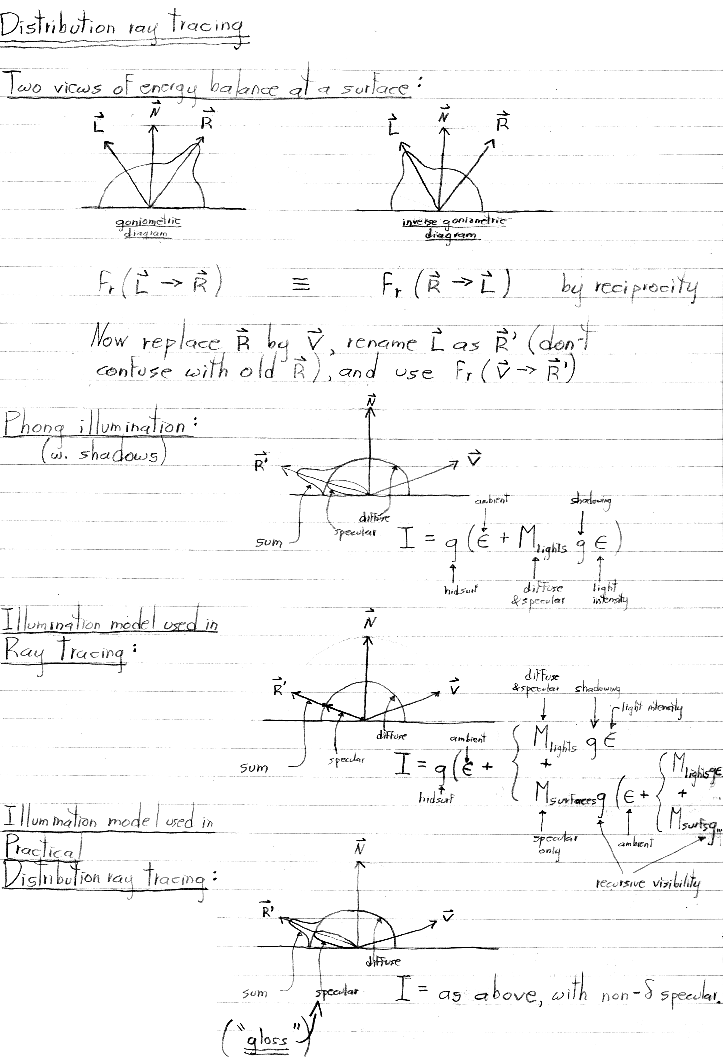 Distribution ray tracing
Two views of energy balance at a surface:
L N R L N R
goniometric diagram
inverse goniometric diagram
Fr(L → R) ≡ Fr(R → L) by reciprocity
Now replace R by V, rename L as R' (don't
confuse with old R), and use Fr(V → R')
Phong illumination:
(w. shadows)
N
R' V
sum specular diffuse
ambient shadowing
I = g(ε + M lights g ε)
hidsurf diffuse & specular light intensity
Illumination model used in
Ray Tracing:
N
R' V
sum specular diffuse
diffuse & specular shadowing light intensity
ambient
I = g(ε + { M lights g ε + M surfaces g (ε + { M lights g ε + M surfs g ...
hidsurf
specular only ambient
recursive visibility
Illumination model used in
Practical
Distribution ray tracing:
N
R' V
diffuse
sum specular
I = as above, with non-δ specular.
("gloss")